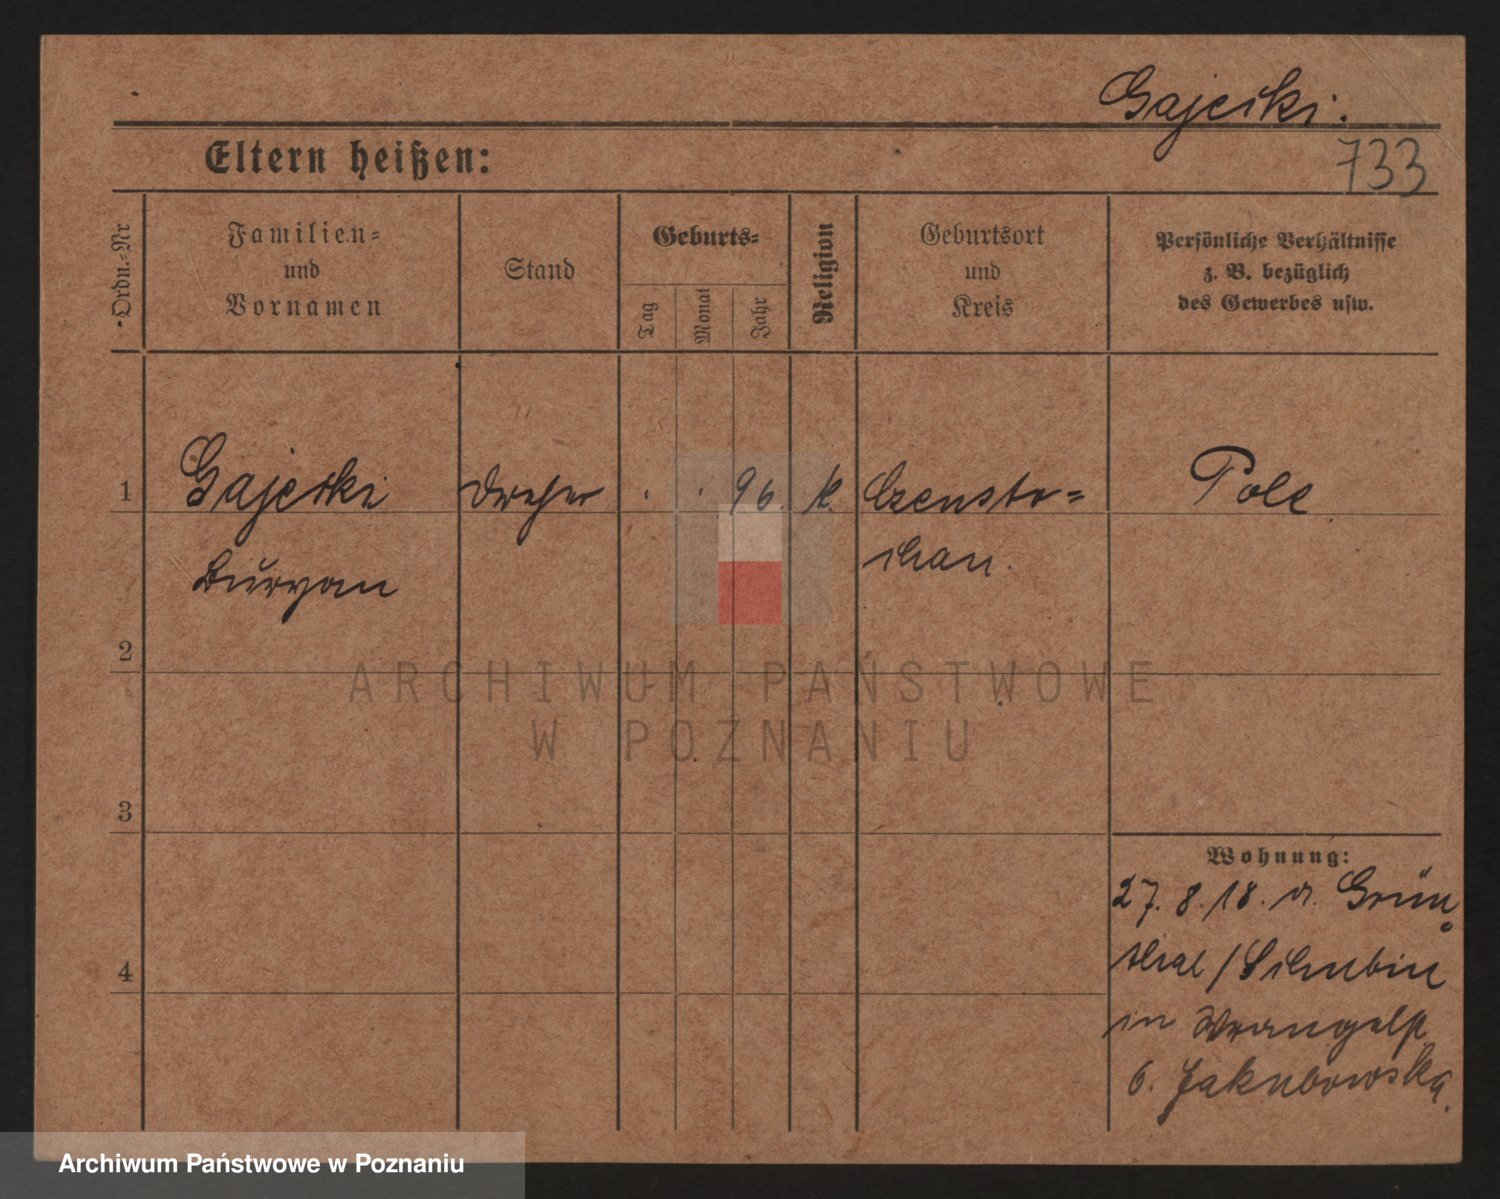 Gajecki.
Eltern heißen:
733
Ordn.-Nr
Familien-
und
Vornamen
Stand
Geburts-
Tag
Monat
Jahr
Religion
Geburtsort
und
Kreis
Persönliche Verhältnisse
z. B. bezüglich
des Gewerbes usw.
1 Gajecki Dreher . . 96. k. Czensto= Pole
chau.
2
ARCHIWUM PAŃSTWOWE
W POZNANIU
3
Wohnung:
27. 8. 18. v. Grün
4
thal / Schubin
in Wrangelst
6. Jakubowska.
Archiwum Państwowe w Poznaniu